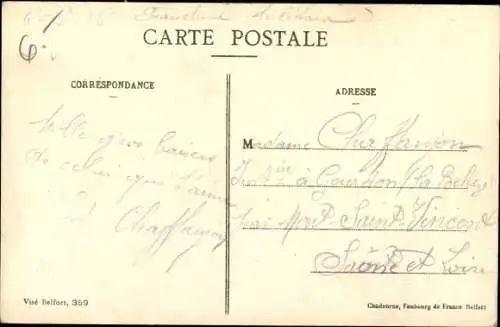 Franchise Militaire
6.
CARTE POSTALE
CORRESPONDANCE
ADRESSE
Mille gros baisers
de celui qui t'aime
Chaffanjon
Madame Chaffanjon
à Gourdon (la
Mont-Saint-Vincent
Saône et Loire
Visé Belfort, 359
Chadourne, Faubourg de France Belfort